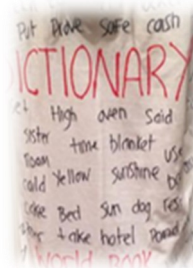 Put Prove Safe cash
ICTIONARY
High oven Said
sister time blanket
room use
cold Yellow sunshine
Bed Sun dog res
take hotel
WORLD BOOK